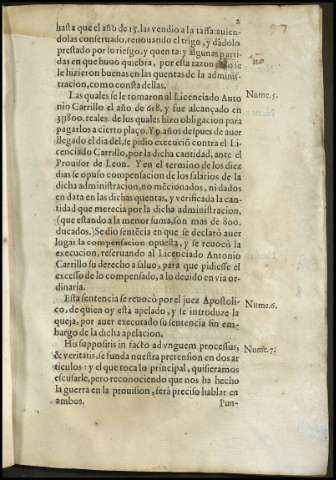 2
hasta que el año de 15. las vendio a la tassa: auien-
dolas conseruado, renouando el trigo, y dadolo
prestado por su riesgo, y quenta: y algunas parti-
das en que huuo quiebra, por esta razon
le hizieron buenas en las quentas de la adminis-
tracion, como consta dellas.
Las quales se le tomaron al Licenciado Anto
nio Carrillo el año de 618. y fue alcançado en
reales. de los quales hizo obligacion para
pagarlos a cierto plaço. Y 9. años despues de auer
llegado el dia del, se pidio execució contra el Li-
cenciado Carrillo, por la dicha cantidad, ante el
Prouisor de Leon. Y en el termino de los diez
dias se opuso compensacion de los salarios de la
dicha administracion, no mẽcionados, ni dados
en data en las dichas quentas, y verificada la can-
tidad que merecia por la dicha administracion,
(que estando a la menor suma, son mas de 800.
ducados.) Se dio sentẽcia en que se declarò auer
lugar la compensacion opuesta, y se reuocò la
execucion, reseruando al Licenciado Antonio
Carrillo su derecho a saluo, para que pidiesse el
excesso de lo compensado, a lo deuido en via or-
dinaria.
Esta sentencia se reuocò por el juez Apostoli-
co, de quien oy esta apelado, y se introduze la
queja, por auer executado su sentencia sin em-
bargo de la dicha apelacion.
His suppositis in facto ad vnguem processus,
& veritatis, se funda nuestra pretension en dos ar
ticulos: y el que toca lo principal, quisieramos
escusarle, pero reconociendo que nos ha hecho
la guerra en la prouision, serà preciso hablar en
ambos.
Pun-
Nume. 5.
Nume. 6.
Nume. 7.